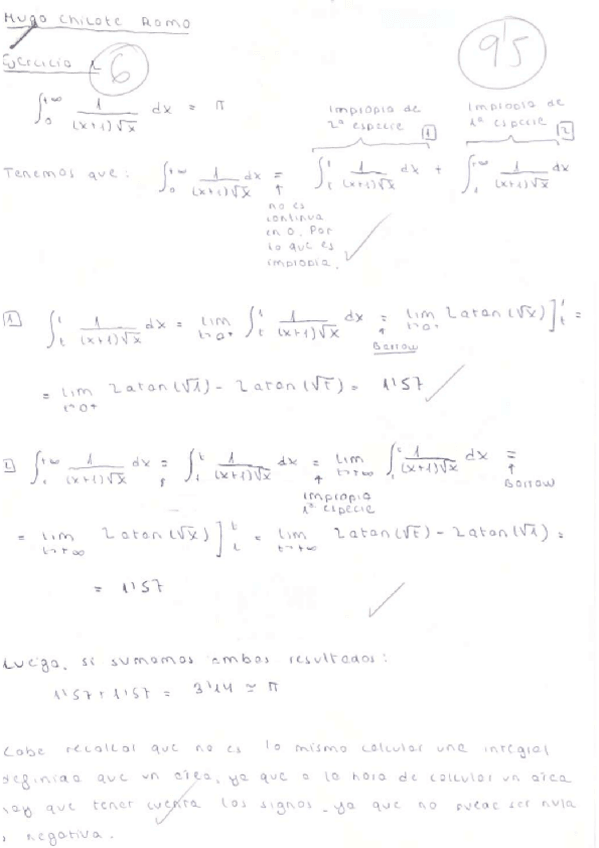 Hugo Chicote Romo
Ejercicio 6
9'5
∫₀^{+∞} 1/((x+1)√x) dx = π
Impropia de 2ª especie [1]
Impropia de 1ª especie [2]
Tenemos que: ∫₀^{+∞} 1/((x+1)√x) dx = ∫ₜ^1 1/((x+1)√x) dx + ∫₁^{+∞} 1/((x+1)√x) dx
↑
no es
continua
en 0. Por
lo que es
impropia.
[1] ∫ₜ^1 1/((x+1)√x) dx = lim_{t→0+} ∫ₜ^1 1/((x+1)√x) dx = lim_{t→0+} 2atan(√x)]ₜ^1 =
↑
Barrow
= lim_{t→0+} 2atan(√1) - 2atan(√t) = 1'57
[2] ∫₁^{+∞} 1/((x+1)√x) dx = ∫₁^t 1/((x+1)√x) dx = lim_{t→+∞} ∫₁^t 1/((x+1)√x) dx =
↑
impropia
1ª especie
↑
Barrow
= lim_{t→+∞} 2atan(√x)]₁^t = lim_{t→+∞} 2atan(√t) - 2atan(√1) =
= 1'57
Luego, si sumamos ambos resultados:
1'57 + 1'57 = 3'14 ≃ π
Cabe recalcar que no es lo mismo calcular una integral
definida que un área, ya que a la hora de calcular un área
hay que tener cuenta los signos, ya que no puede ser nula
negativa.